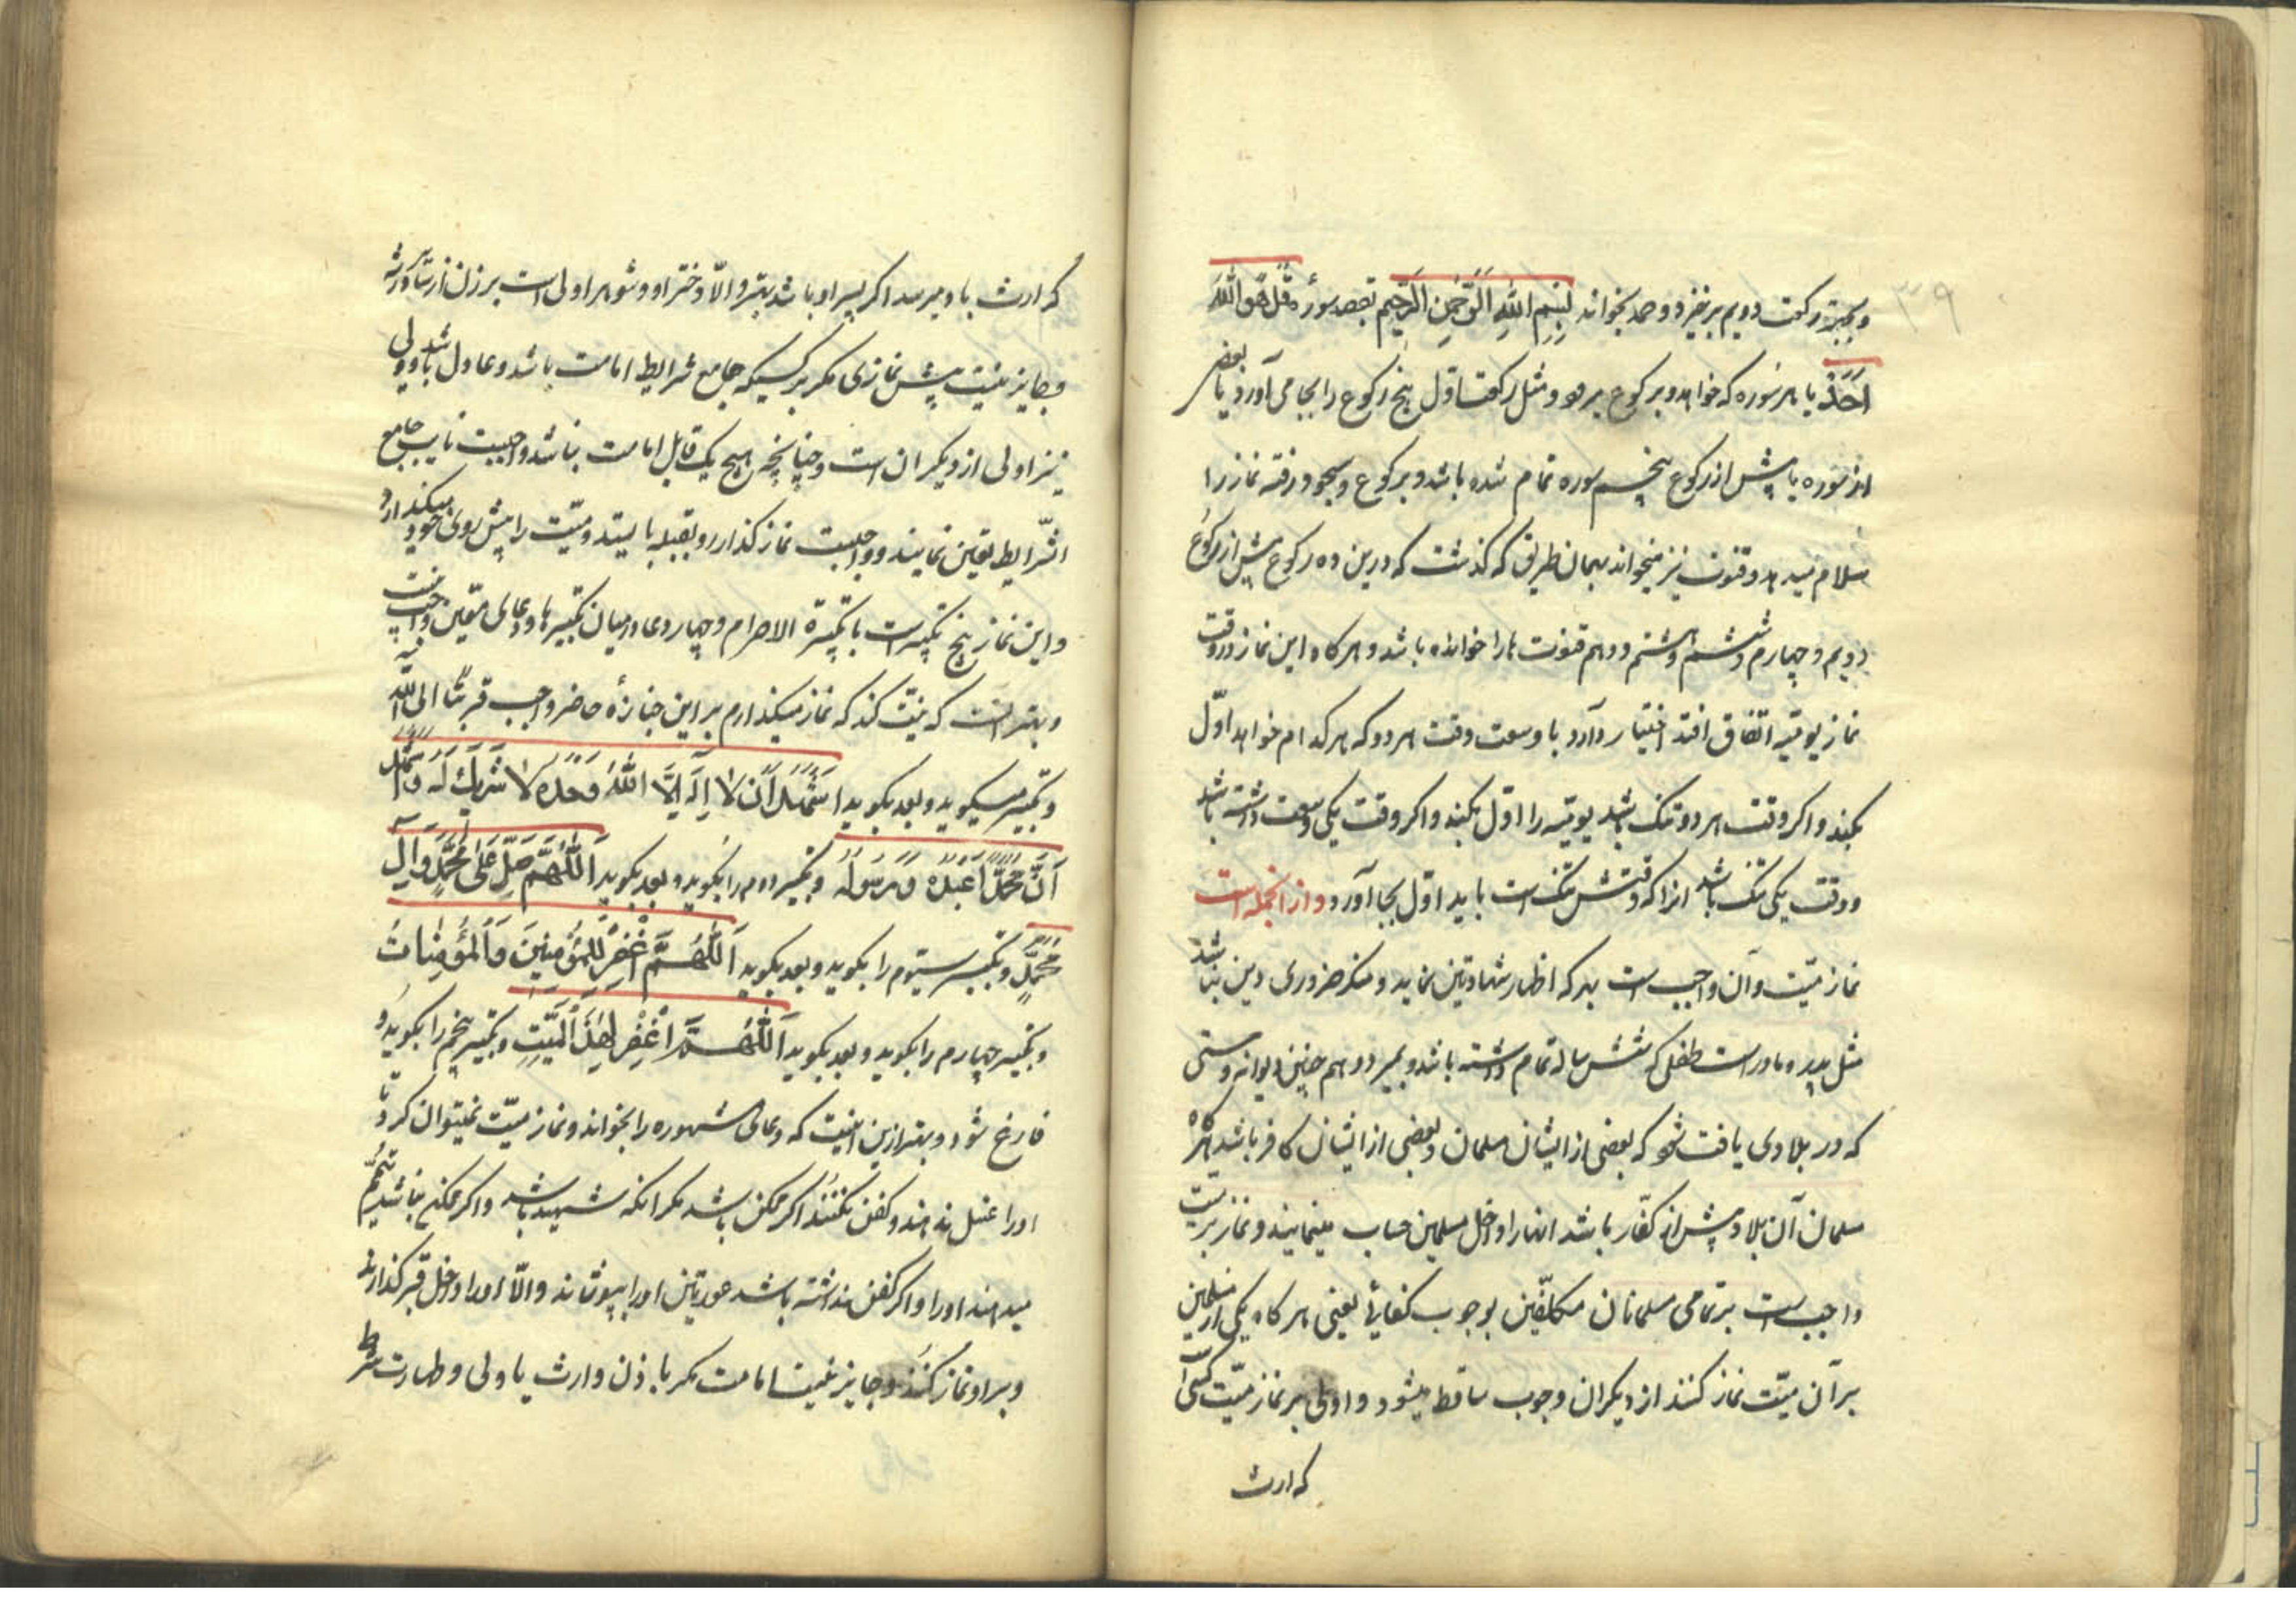 ۳۹
و بجهة رکعت دویم برخیزد و حمد بخواند بِسْمِ اللهِ الرَّحْمٰنِ الرَّحِیمِ بقصد سورهٔ قُلْ هُوَ اللهُ
اَحَدٌ یا هر سوره که خواهد و برکوع برود و مثل رکعت اول پنج رکوع را بجا می‌آورد یا بعضی
از سوره یا پیش از رکوع پنجم سوره تمام شده باشد و برکوع و سجود رفته نماز را
سلام میدهد و قنوت نیز میخواند بهمان طریق که گذشت که درین ده رکوع پیش از رکوع
دویم و چهارم و ششم و هشتم و دهم قنوت ها را خوانده باشد و هرگاه این نماز در وقت
نماز یومیّه اتفاق افتد اختیار دارد با وسعت وقت هر دو که هر کدام خواهد اوّل
بکند و اکر وقت هر دو تنک باشد یومیّه را اول بکند و اکر وقت یکی وسعت داشته باشد
و وقت یکی تنک باشد انرا که وقتش تنک است باید اول بجا آورد و از انجمله است
نماز میّت و آن واجب است بهر که اظهار شهادتین نماید و منکر ضروری دین نباشد
مثل پدر و مادر است طفلی که شش ساله تمام داشته باشد و بمیرد و هم چنین دیوانه و
که در بلادی یافت شود که بعضی از ایشان مسلمان و بعضی از ایشان کافر باشد
مسلمان آن بلاد پیش از کفّار باشد انها را داخل مسلمین حساب مینمایند و نماز بر میت
واجب است بر تمامی مسلمانان مکلّفین بوجوب کفائی یعنی هر کاه یکی از مسلمین
بر آن میّت نماز کنند از دیکران وجوب ساقط میشود و اولی بر نماز میّت کسی است
که ارث
که ارث باو میرسد اکر پسر او باشد بهتر و الّا دختر او و شوهر اولی است بر زن از سایر ورثه
و جایز نیست پیش نمازی مکر بر کسیکه جامع شرایط امامت باشد و عادل باشد و ولی
نیز اولی از دیکران است و چنانچه هیچ یک قابل امامت نباشد واجبست نایب جامع
الشّرایط تعین نمایند و واجبست نماز کذار رو بقبله بایستد و میّت را پیش روی خود میکذارد
و این نماز پنج تکبیر است با تکبیرة الاحرام و چهار دعا در میان تکبیرها و دعای معّین واجب نیست
و بهتر انست که نیّت کند که نماز میکذارم بر این جنازهٔ حاضر واجب قربتًا الی اللّه
و تکبیر میکوید و بعد بکوید اَشْهَدُ اَنْ لا اِلٰهَ اِلَّا اللهُ وَحْدَهُ لا شَرِیكَ لَهُ وَاَشْهَدُ
اَنَّ مُحَمَّدًا عَبْدُهُ وَرَسُولُهُ و تکبیر دوم را بکوید و بعد بکوید اَللّٰهُمَّ صَلِّ عَلٰی مُحَمَّدٍ وَآلِ
مُحَمَّدٍ و تکبیر سیّوم را بکوید و بعد بکوید اَللّٰهُمَّ اغْفِرْ لِلْمُؤْمِنِینَ وَالْمُؤْمِنَاتِ
و تکبیر چهارم را بکوید و بعد بکوید اَللّٰهُمَّ اغْفِرْ لِهٰذَا الْمَیِّتِ و تکبیر پنجم را بکوید و
فارغ شود و بهتر ازین انیست که دعای مشهوره را بخواند و نماز میّت نمیتوان کرد تا
او را غسل ندهند و کفن نکنند اکر ممکن باشد مکر انکه شهید باشد و اکر ممکن نباشد تیمّم
میدهند او را و اکر کفن نداشته باشد عورتین او را بپوشانند و الّا او را داخل قبر کذارند
و بر او نماز کنند و جایز نیست امامت مکر باذن وارث یا ولی و طهارت شرط